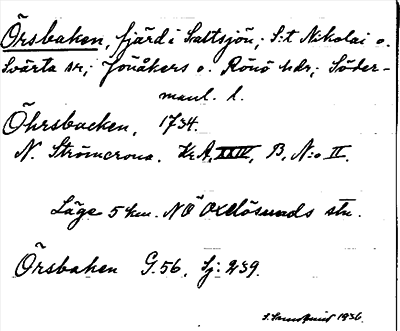 Örsbaken, fjärd i Saltsjön; S:t Nikolai o.
Svärta sn; Jönåkers o. Rönö hdr; Söder-
manl. l.
Öhrsbacken, 1734.
N. Strömcrona. Kr.A, XXIV, B, N:o II.
Läge 5 km. NÖ Oxelösunds stn.
Örsbaken G.56, Sj: 239.
1936.